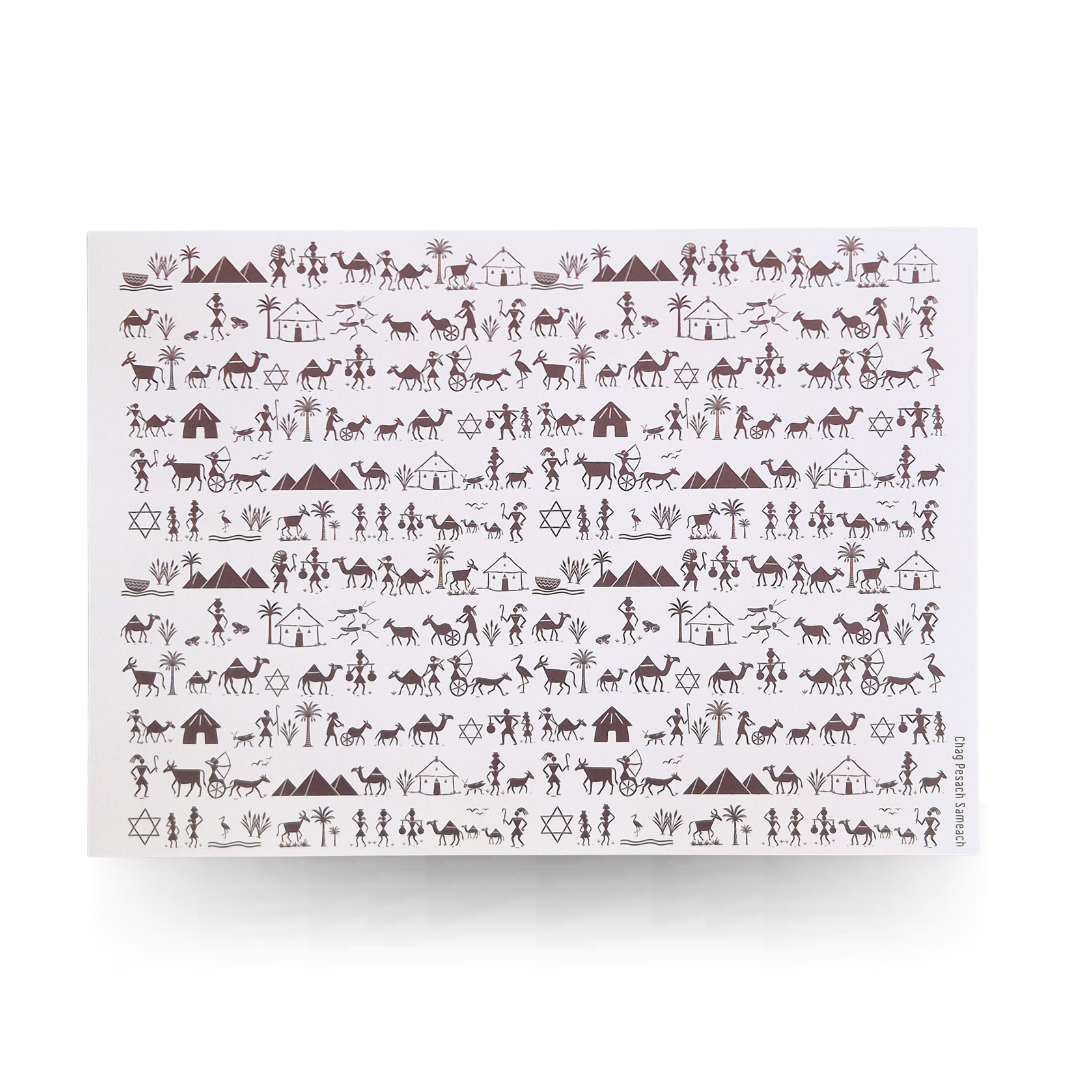 Chag Pesach Sameach